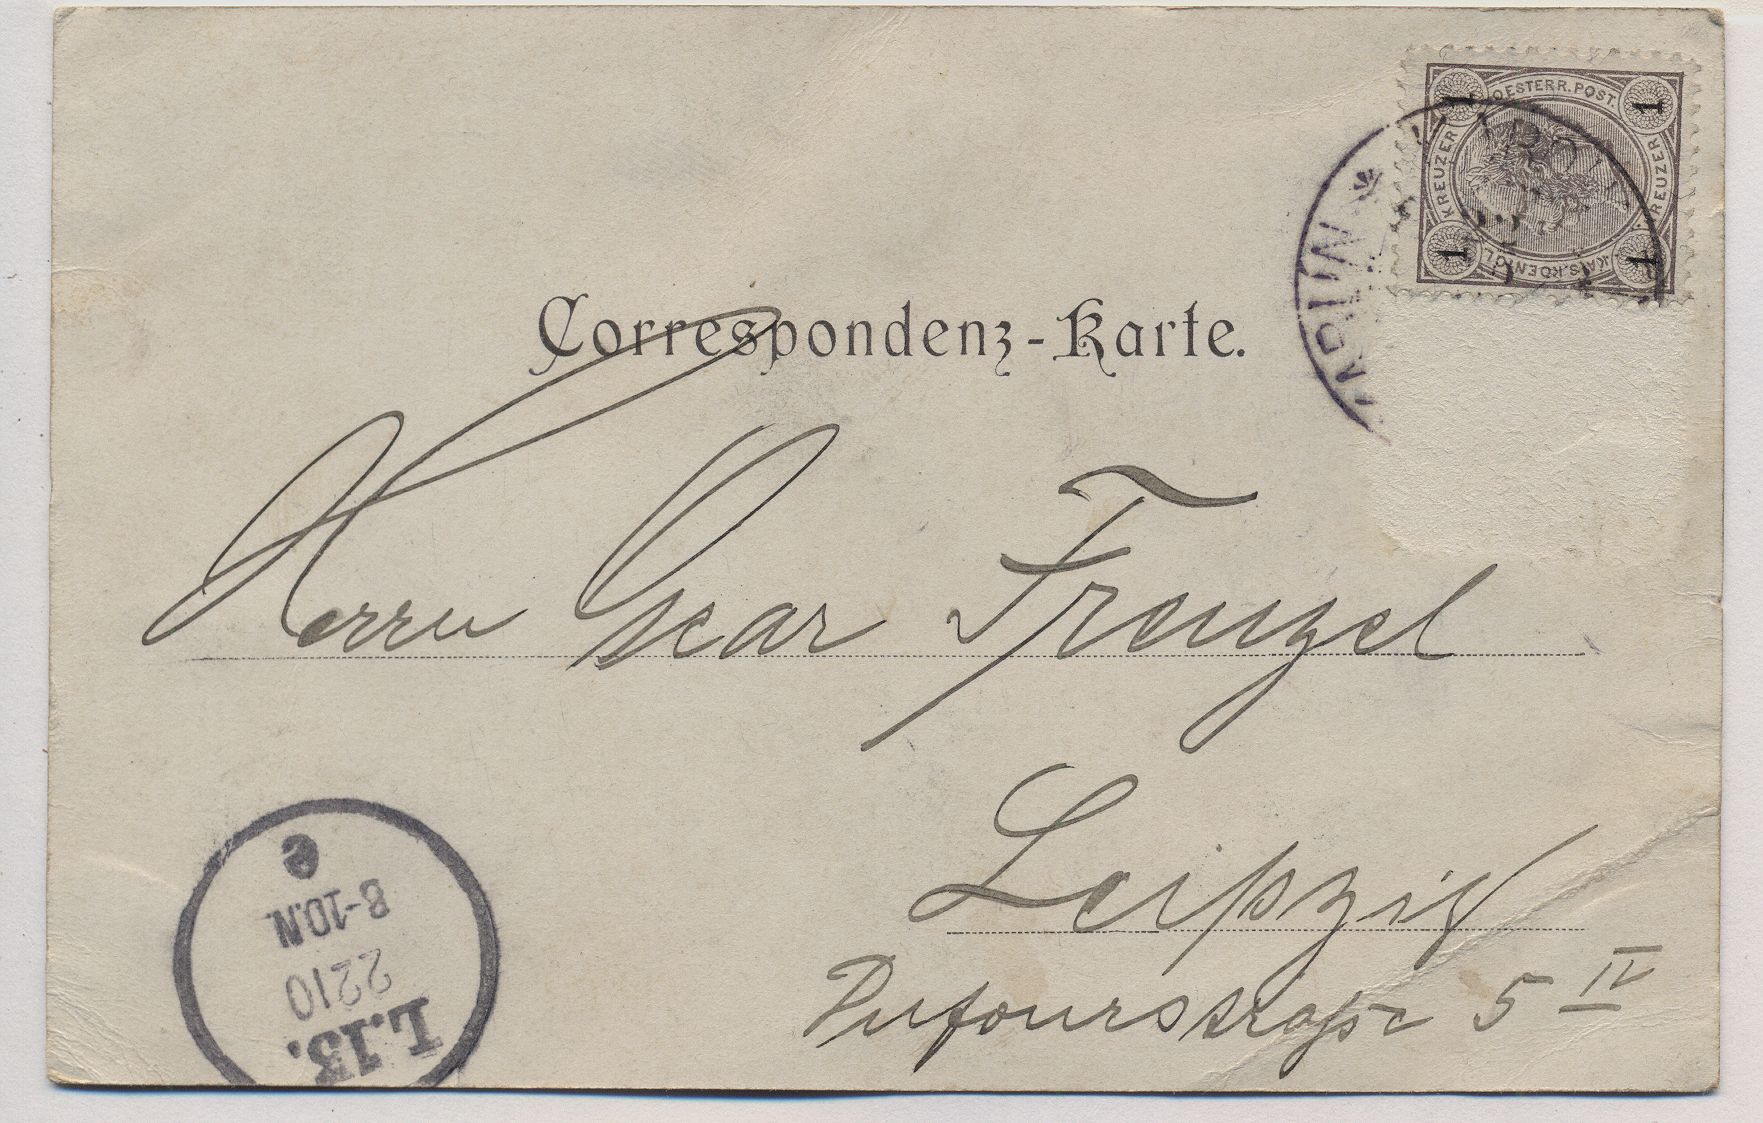 OESTERR. POST.
KREUZER
KREUZER
KAIS. KOENIGL.
1
1
1
1
Correspondenz-Karte.
Herrn Oscar Frenzel
Leipzig
Dufourstraße 5 IV
L.13.
2210
8-10.N
e